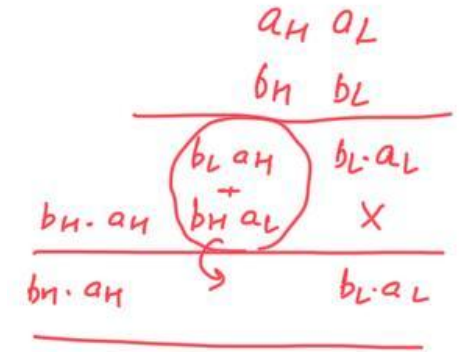 aH aL
bH bL
bL aH bL.aL
+
bH.aH bH aL X
bH.aH bL.aL